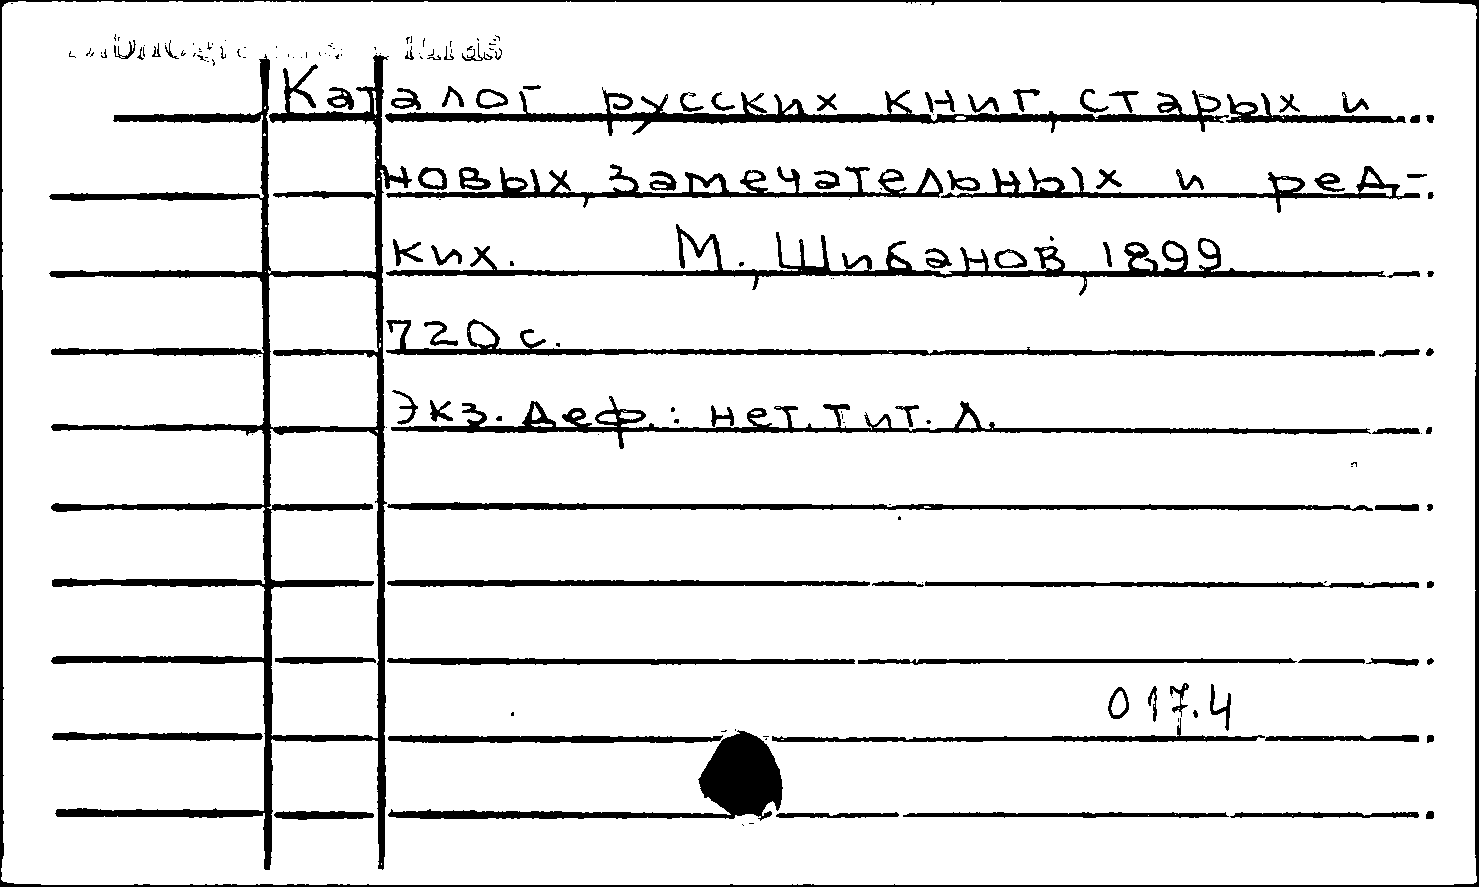 Каталог русских книг, старых и
новых, замечательных и ред-
ких. М., Шибанов, 1899.
720 с.
Экз. деф.: нет. тит. л.
017.4